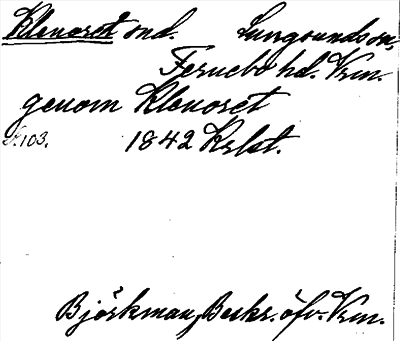 Klenoret snd. Lungsunds sn,
Fernebo hd. Vrm.
genom Klenoret
S. 103. 1842 Krlst.
Björkman, Beskr. öfv. Vrm.